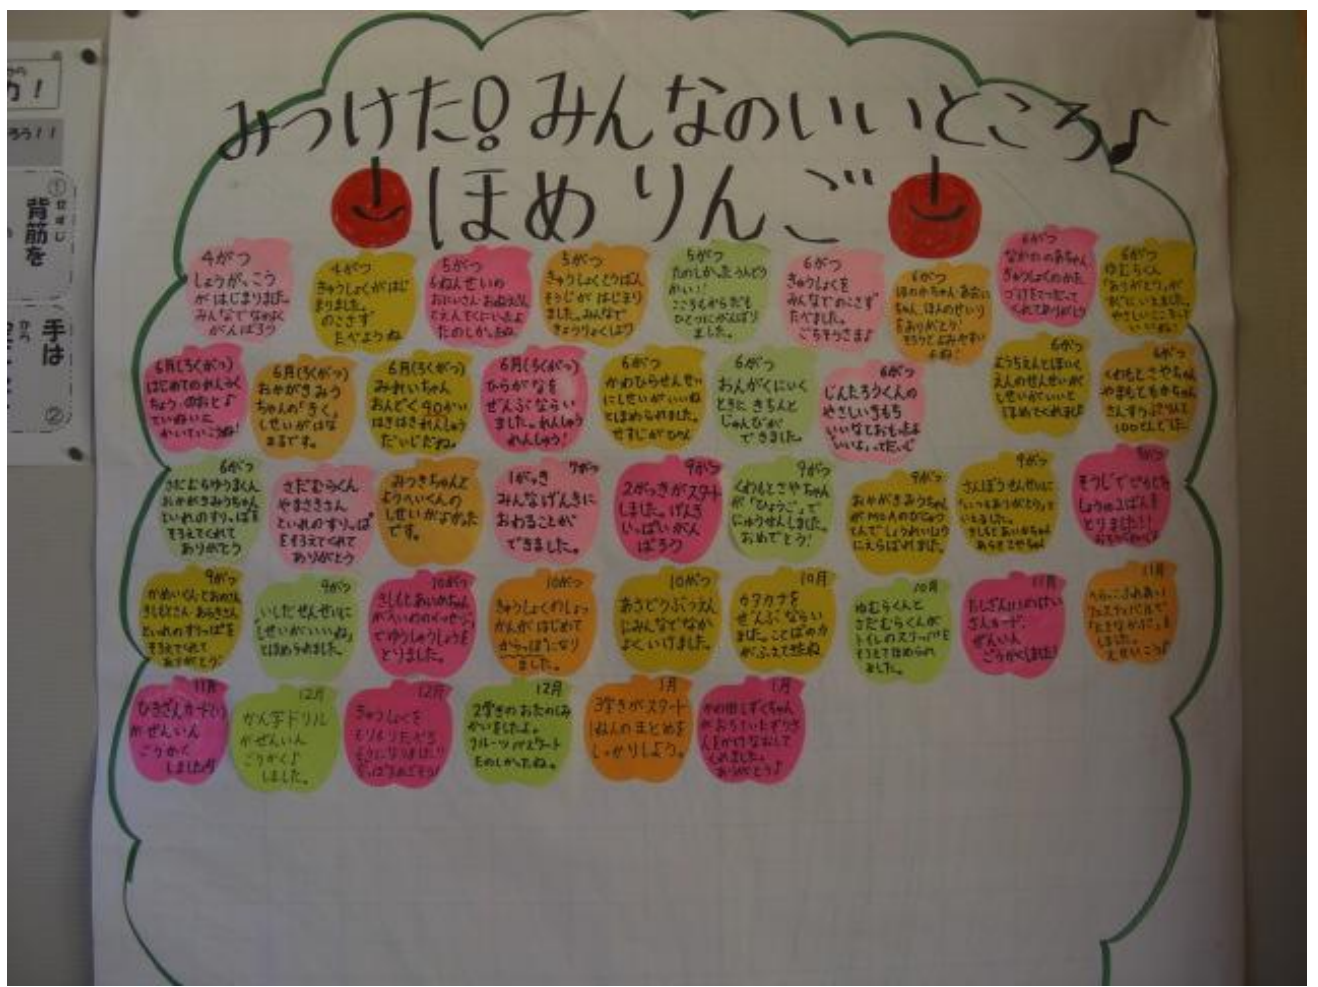 みつけた!みんなのいいところ♪
ほめりんご
4がつ
しょうがっこう
がはじまりました。
みんなでなかよく
がんばろう
4がつ
きゅうしょくがはじ
まりました。
のこさず
たべようね
5がつ
6ねんせいの
おにいさんおねえさん
たのしかったね
5がつ
きゅうしょくとうばん
そうじがはじまり
ました。みんなで
きょうりょくしよう
5がつ
たのしかったうんどう
かい!
こころもからだも
ひとつにがんばり
ました。
6がつ
きゅうしょくを
みんなでのこさず
たべました。
ごちそうさま♪
6がつ
ちゃん、ほんのせいり
をありがとう!
6がつ
なかののあちゃん
きゅうしょくのかた
づけをてつだって
くれてありがとう
6がつ
ゆむらくん
「ありがとう」が
やさしいこころって
いいね!
6月(ろくがつ)
はじめてのれんらく
ちょう・のおと♪
ていねいに
かいていこうね!
6月(ろくがつ)
おかがきみう
ちゃんの「きく」
しせいがはな
まるです。
6月(ろくがつ)
みれいちゃん
おんどく90かい
はきはきれんしゅう
だいじだね。
6月(ろくがつ)
ひらがなを
ぜんぶならい
ました。れんしゅう
れんしゅう!
6がつ
かわひらせんせい
にしせいがいいね
とほめられました。
せすじがぴん
6がつ
おんがくにいく
ときにきちんと
じゅんびが
できました。
6がつ
じんたろうくんの
やさしいきもち
いいなとおもったよ
「いいよ」ってだいじ
6がつ
ようちえんとほいく
えんのせんせいが
しせいがいいと
ほめてくれました
6がつ
くわもとさやちゃん
やまもともかちゃん
さんすうぷりんと
100てんでした。
6がつ
さだむらゆうまくん
おかがきみうちゃん
といれのすりっぱを
そろえてくれて
ありがとう
さだむらくん
やまさきさん
といれのすりっぱ
をそろえてくれて
ありがとう
みつきちゃんと
ようへいくんの
しせいがよかった
です。
7がつ
1がっき
みんなげんきに
おわることが
できました。
9がつ
2がっきがスタート
しました。げんき
いっぱいがん
ばろう
9がつ
くわもとさやちゃん
が「ひょうご」で
にゅうせんしました。
おめでとう!
9がつ
おかがきみうちゃん
がMOAのびじゅつ
てんでしょうれいしょう
にえらばれました。
9がつ
さんぽうせんせいに
「いつもありがとう」と
いえました。
きしもとあいかちゃん
あらきさやちゃん
9がつ
そうじでぴかぴか
しょうの2ばんを
とりました!!
9がつ
きしもとさん あらきさん
といれのすりっぱを
そろえてくれて
ありがとう。
9がつ
いしだせんせいに
「しせいがいいね」
とほめられました。
10がつ
きしもとあいかちゃん
でゆうしゅうしょうを
とりました。
10がつ
きゅうしょくのしょっ
かんがはじめて
からっぽになり
ました。
10がつ
あさどうぶつえん
にみんなでなか
よくいけました。
10月
カタカナを
ぜんぶならい
ました。ことばの力
がふえてきたね
10月
ゆむらくんと
さだむらくんが
トイレのスリッパを
そろえてほめられ
ました。
11月
たしざん(1)のけい
さんカード、
ぜんいん
ごうかくしました!
11月
フェスティバルで
しました。
だいせいこう♪
11月
ひきざんカード(1)
がぜんいん
ごうかく
しました!!
12月
かん字ドリル
がぜんいん
ごうかく♪
しました。
12月
きゅうしょくを
もりもりたべる
12月
2学きのおたのしみ
かいをしたよ。
フルーツバスケット
たのしかったね。
1月
3学きがスタート
1ねんのまとめを
しっかりしよう。
1月
かの田しずくちゃん
がおちていたぞうき
んをかけなおして
くれました。
ありがとう♪
背筋を
せすじ
①
手は
②